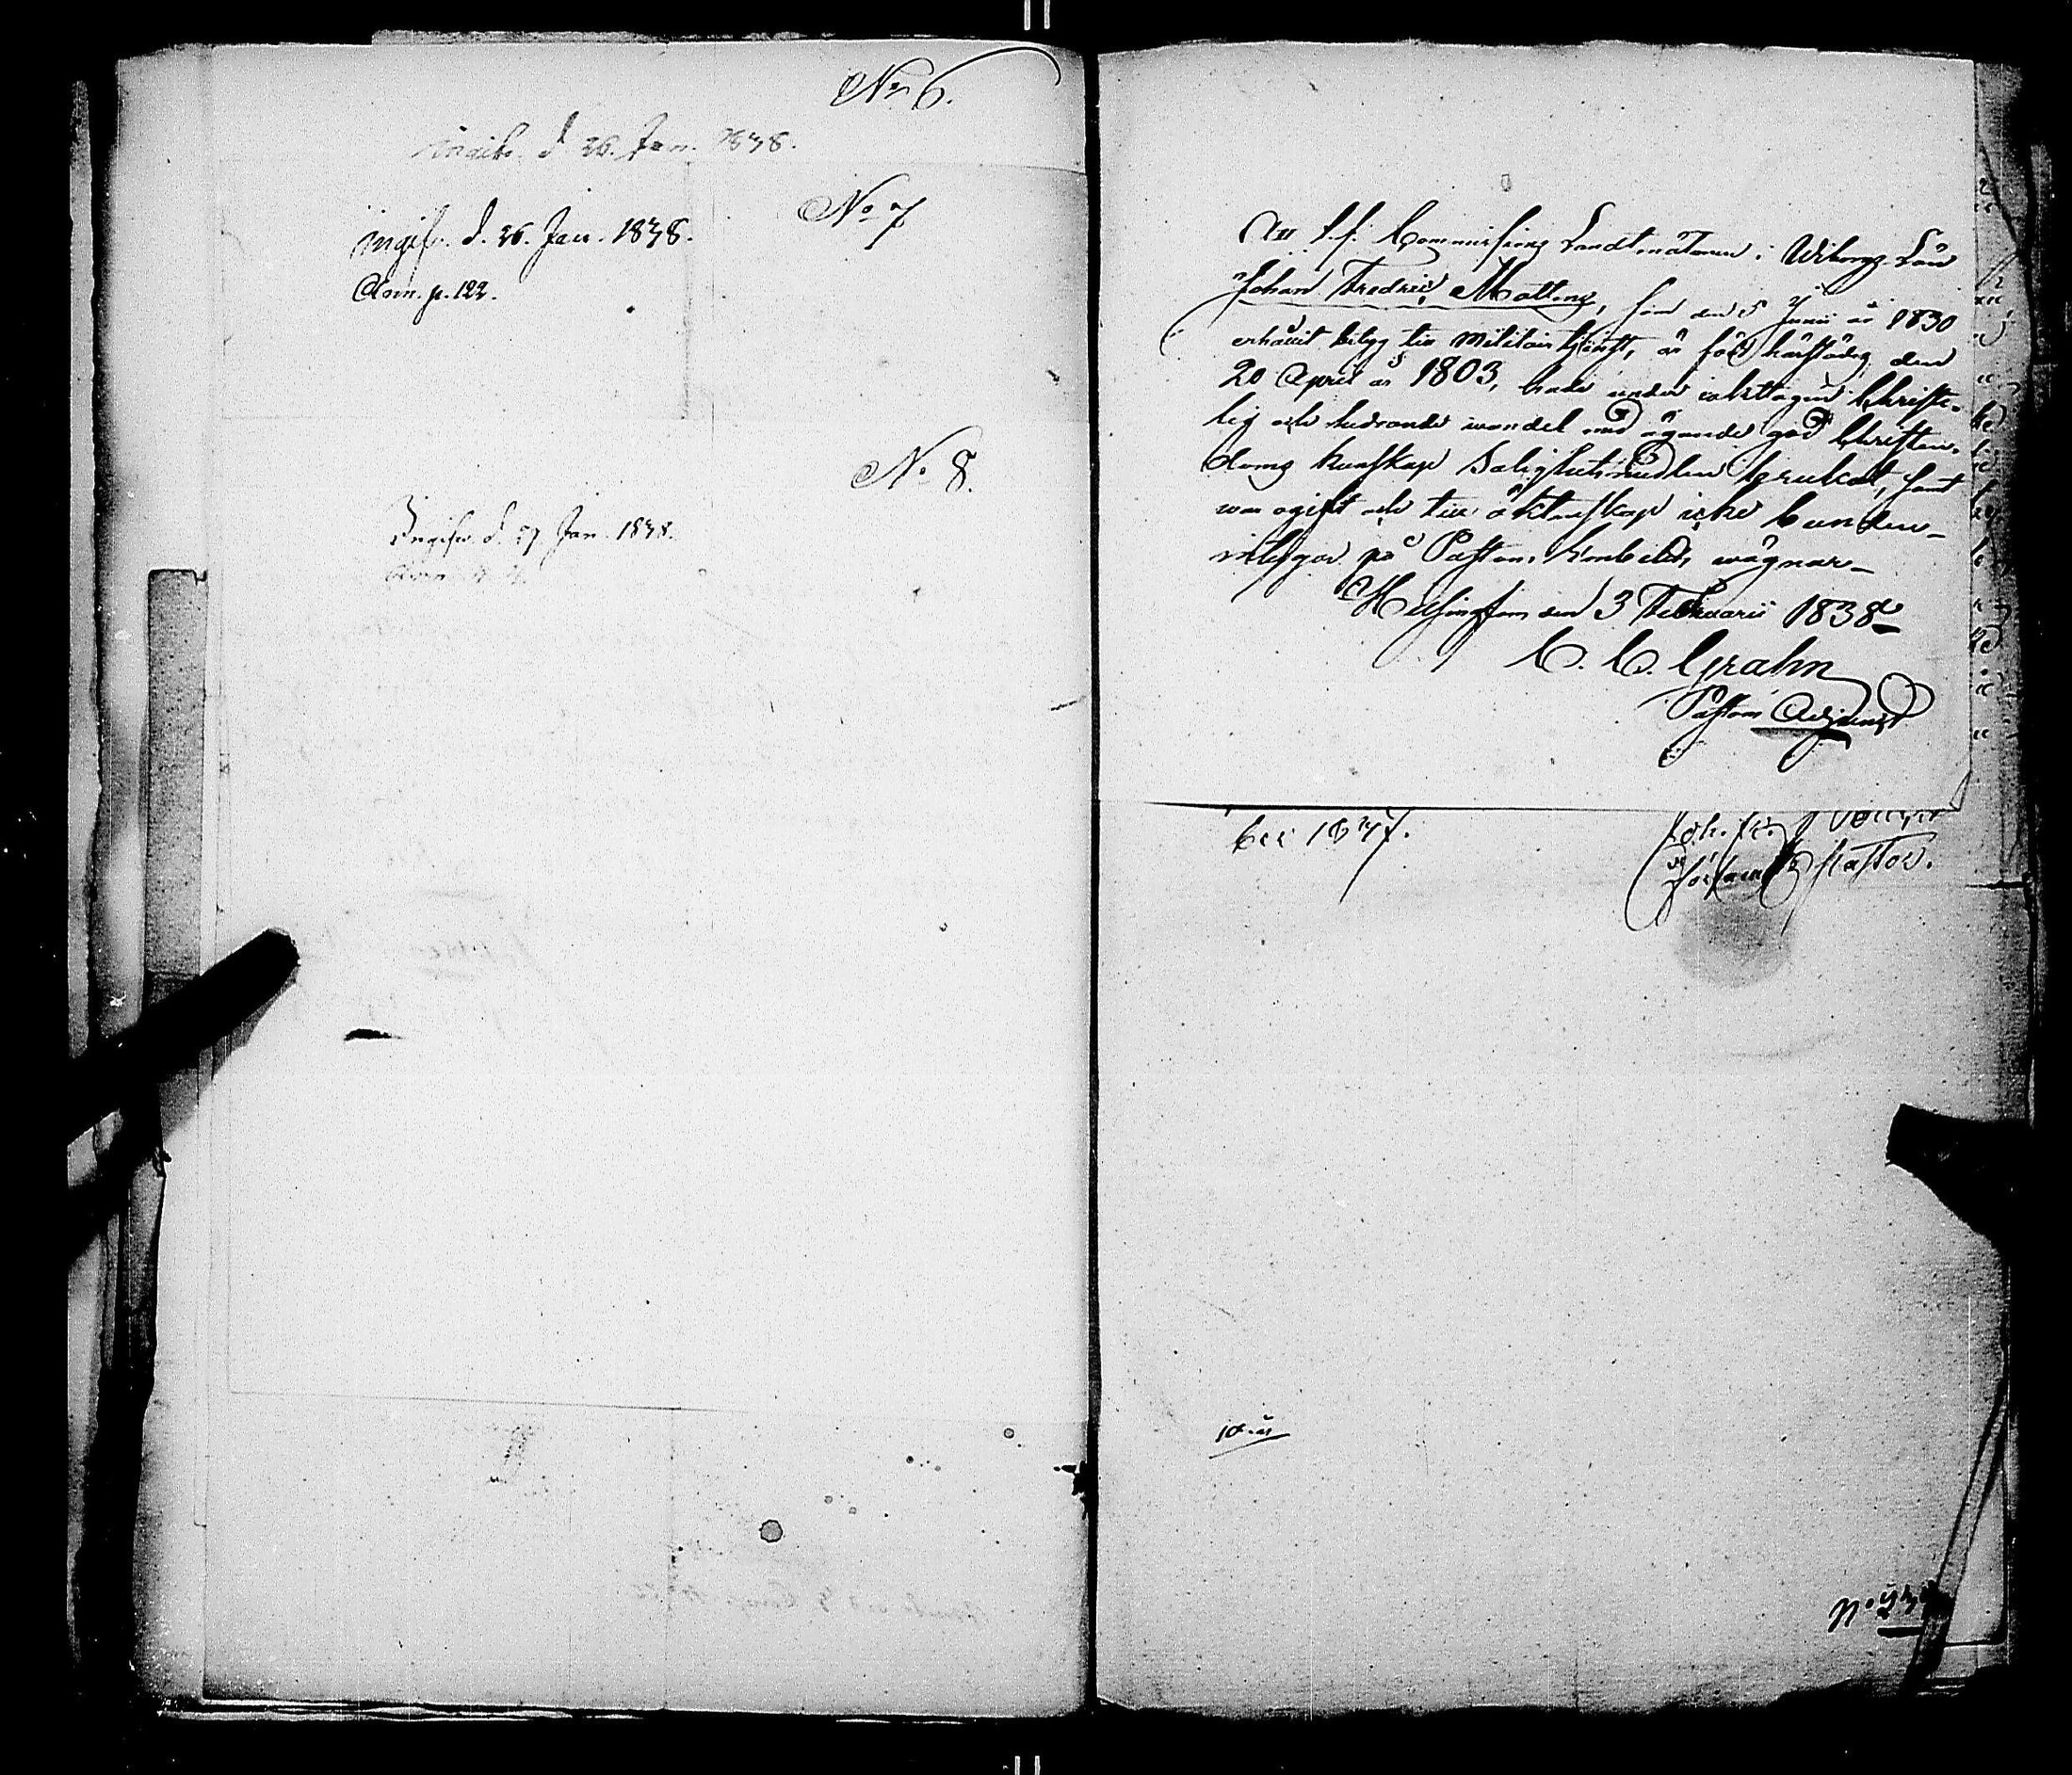 No 6.
Ingifv. d. 26. Jan. 1838.
No 7
Ingifv. d. 26. Jan. 1838.
Com. p. 122.
No 8.
Ingifv. d. 27 Jan. 1838.
Att t.f. Commissions Landtmätaren i Wiborgs Län
Johan Fredric Molting, som den 5 Junii år 1830
erhållit betyg till Militair tjenst, är född härstädes den
20 April år 1803, hade under iakttagen Christe-
lig och hedrande wandel med ägande god Christen-
doms kunskap Salighetsmedlen brukat, samt
war ogift och till äktenskap icke bunden -
intygar på Pastors Embetets wägnar -
Helsingfors den 3 Februarii 1838
C. C. Grahn
Pastors Adjunct
ber 1837.
Joh. Fr.
Pastor.
N:o